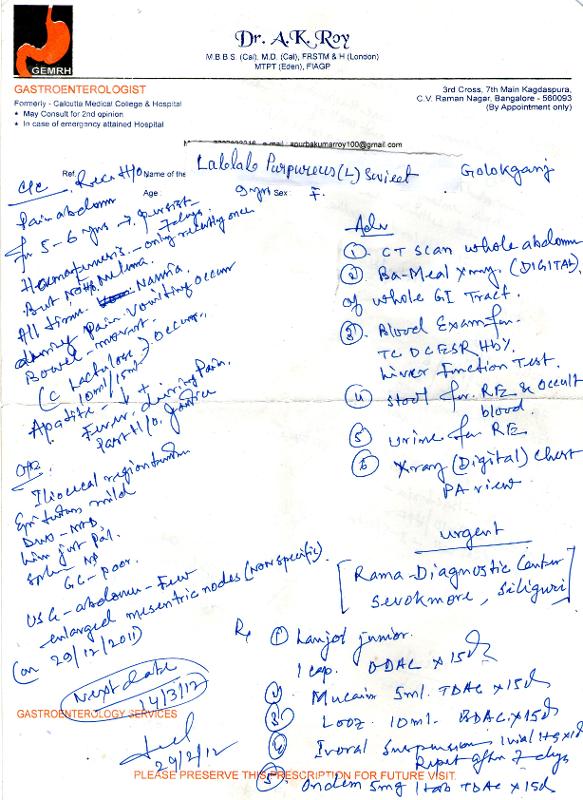 GEMRH
Dr. A.K. Roy
M.B.B.S. (Cal), M.D. (Cal), FRSTM & H (London)
MTPT (Eden), FIAGP
GASTROENTEROLOGIST
Formerly - Calcutta Medical College & Hospital
• May Consult for 2nd opinion
• In case of emergency attained Hospital
3rd Cross, 7th Main Kagdaspura,
C.V. Raman Nagar, Bangalore - 560093
(By Appointment only)
e-mail : apurbakumarroy100@gmail.com
Ref. Name of the
Lablab Purpureus (L) Sweet Golokganj
Age : 9 yrs Sex : F.
C/C
Pain abdomen
for 5-6 yrs → persist
7 days
Haematemesis - only recently once
But No Melena.
All time Nausia
during Pain. Vomiting occur
Bowel - movmt.
(C Lactulose) occurs.
10ml/15ml
Apatite - ↓ +
Fever. during Pain.
Past H/O. Jaundice
O/E
Iliocecal region
mild
G.C - poor.
USG - abdomen - Few
enlarged mesentric nodes (non specific).
(on 29/12/2011)
Next date
14/3/12
GASTROENTEROLOGY SERVICES
29/2/12
Adv
① CT Scan whole abdomen
② Ba-Meal xray. (DIGITAL)
of whole GI Tract.
③ Blood Exam for
TC DC ESR Hb%
Liver Function Test.
④ Stool for RE & occult
blood.
⑤ Urine for RE
⑥ Xray (Digital) Chest
PA view
urgent
[Rama-Diagnostic Center
Sevokmore, Siliguri]
Rx ① Lanzol junior.
1 cap. ODAC x 15d
② Mucain 5ml. TDAC x 15d
③ Looz 10ml. BDAC x 15d
④ Ivoral Suspension 1 vial
Repeat after 7 days
⑤ Ondem 5mg 1 tab TDAC x 15d
PLEASE PRESERVE THIS PRESCRIPTION FOR FUTURE VISIT.